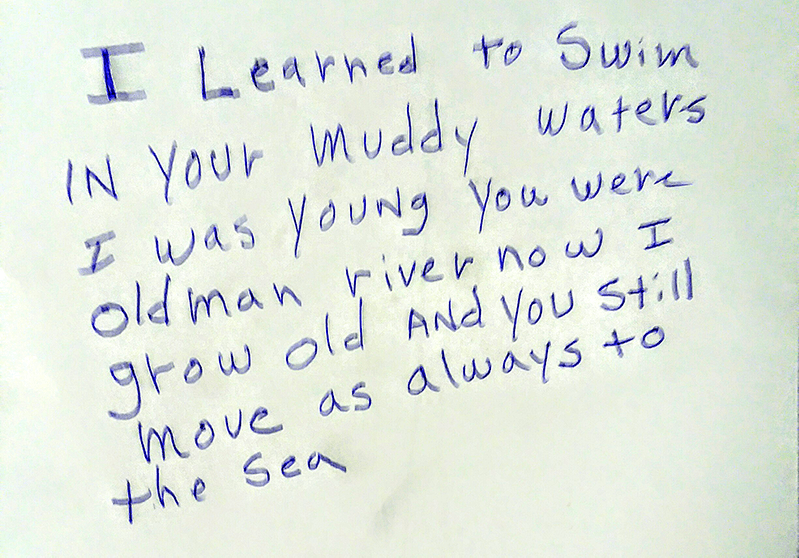 I Learned to Swim
IN Your muddy waters
I was YouNg You were
oldman river now I
grow old ANd You Still
move as always to
the sea